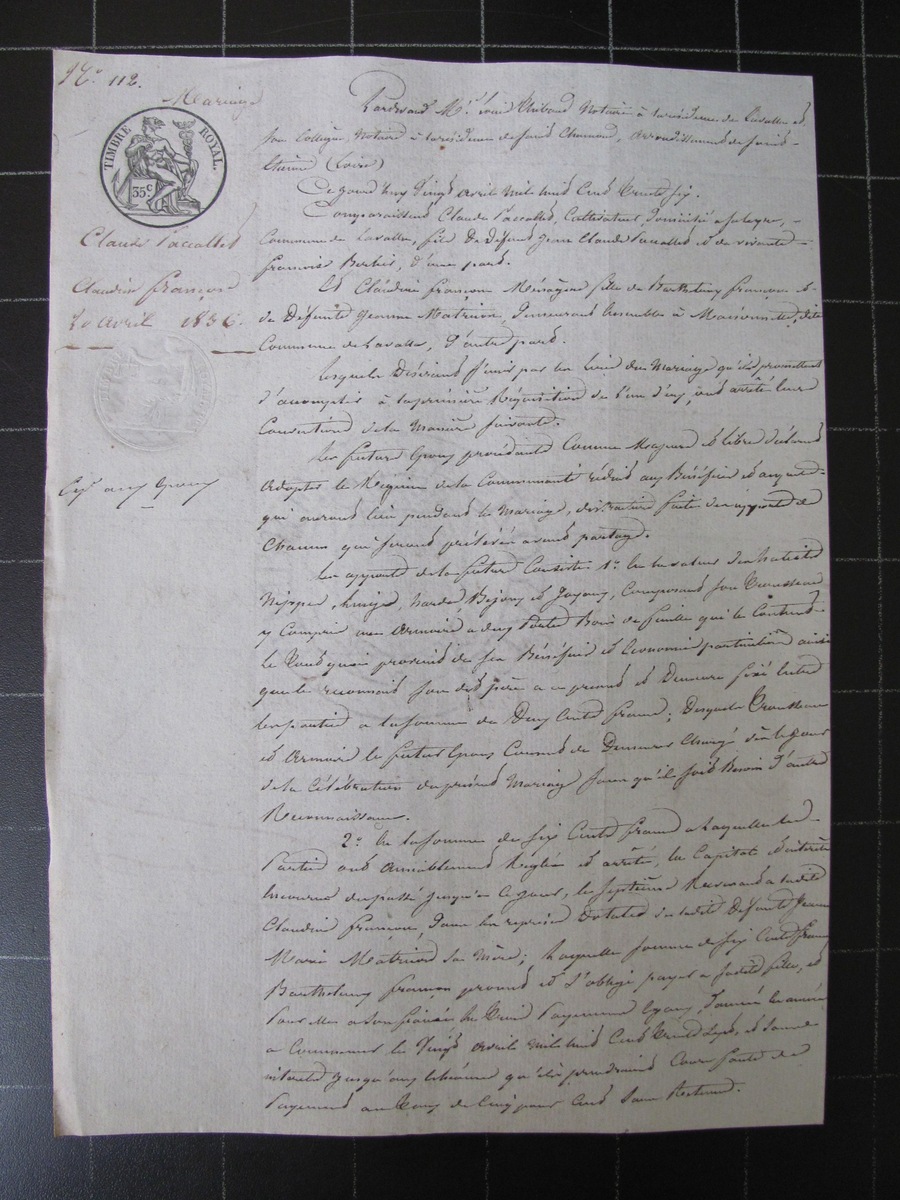 N.° 112.
Mariage
TIMBRE ROYAL.
35 c
Claude Paccallet
Claudine françoise
20 avril 1836.
Exp. aux Epoux
Pardevant M.e Louis Thibaud Notaire à la résidence de Lavalla et
son Collègue, Notaire à la résidence de Saint Chamond, arrondissement de Saint
Etienne (Loire)
Ce jourd'huy Vingt avril mil huit Cent trente six.
Comparaissent Claude Paccallet, Cultivateur, domicilié à
Commune de Lavalla, fils de défunt Jean Claude Paccallet et de vivante
françoise d'une part.
Et Claudine françoise Ménagère fille de Barthélemy françois et
de défunte Jeanne Matricon, demeurant ensembles à Maisonnette, dite
Commune de Lavalla, d'autre part.
Lesquels Désirant s'unir par les Liens du Mariage qu'ils promettent
d'accomplir à la première Réquisition de l'un d'eux, ont arrêté leurs
Conventions de la Manière suivante.
Les futurs Epoux procédants Comme Majeurs et libres
Adoptes le Régime de la Communauté réduit aux Bénéfices et acquets
qui auront lieu pendant le Mariage, distraction faite des apports de
Chacun qui seront prélevés avant partage.
Les apports de la future Consiste 1.° en la valeur des habits
Nippes, Linges, hardes, Bijoux et Joyaux, Composant son trousseau
y Compris une Armoire a deux Portes Bois de qui le Contient
le tout provenu de ses Bénéfices et Economies particulières ainsi
que le reconnait son dit père a ce présent et Demeure fixé entre
les parties a la somme de Deux Cents francs; Desquels Trousseau
et armoire le futur Epoux Consent de Demeurer Chargé dès le jour
de la Célébration du présent Mariage sans qu'il soit Besoin d'autre
Reconnaissance.
2.° En la somme de six Cents francs a laquelle les
Parties ont amiablement Réglé et arrêté, les Capital et intérêts
encourus du passé jusqu'à ce jour, le septième Revenant a ladite
Claudine françoise, dans les reprises Dotales de ladite Défunte Jeanne
Marie Matricon sa Mère; Laquelle somme de six Cents francs
Barthélemy françon promet et s'oblige payer a sadite fille, et
pour elle a son fiancé en Trois Payements égaux, d'année en année
a Commencer le Vingt avril mil huit Cent trente sept, et sans
intérêts jusqu'aux échéances qu'ils prendraient Cours faute de
Payement au Taux de Cinq pour Cent sans Retenue.